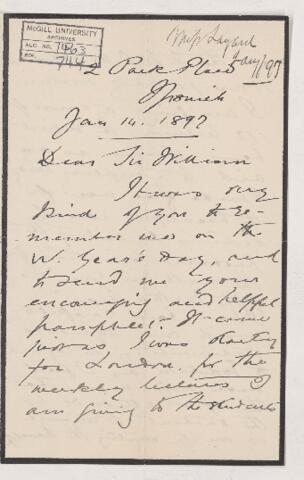 McGILL UNIVERSITY
ARCHIVES
ACC. NO. 1463
REF. 744
Miss Layard
Jany/97
2 Park Place
Ipswich
Jan 14. 1897
Dear Sir William
It was very
kind of you to re-
member me on the
N. Year's Day, and
to send me your
encouraging and helpful
pamphlet. It came
just as I was starting
for London, for the
weekly lectures I
am giving to the students